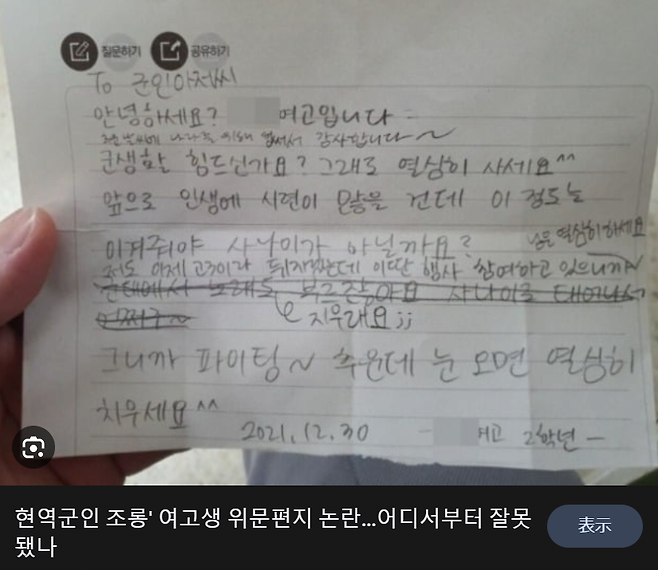 질문하기 공유하기
To 군인아저씨
안녕하세요? 여고입니다
추운 날씨에 나라를 위해 힘써서 감사합니다~
군생활 힘드신가요? 그래도 열심히 사세요^^
앞으로 인생에 시련이 많을 건데 이 정도는
이겨줘야 사나이가 아닐까요?
저도 이제 고3이라 뒤지겠는데 이딴 행사 참여하고 있으니까~
눈을 열심히 하세요
군대에서 노래도 부르잖아요 사나이로 태어나서
어쩌구~
지우래요;;
그니까 파이팅~ 추운데 눈 오면 열심히
치우세요^^
2021.12.30 여고 2학년
현역군인 조롱' 여고생 위문편지 논란…어디서부터 잘못
됐나
表示